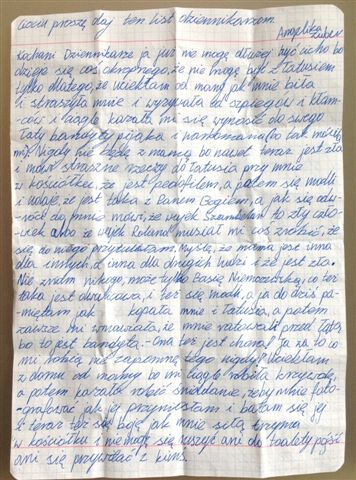 Ciociu proszę daj ten list dziennikarzom.
Angelika
Kochani Dziennikarze ja już nie mogę dłużej być cicho bo
dzieje się coś okropnego, że nie mogę być z tatusiem
tylko dlatego, że uciekłam od mamy jak mnie biła
i straszyła mnie i wyzywała od szpiegów i kłam-
ców i ciągle kazała mi się wynosić do swego
taty bandyty pijaka i narkomana (bo tak mówiła
mi). Nigdy nie będę z mamą bo nawet teraz jest zła
i mówi straszne rzeczy do tatusia przy mnie
w kościółku, że jest pedofilem, a potem się modli
i udaje, że jest taka z Panem Bogiem, a jak się odw-
róci do mnie mówi, że wujek to zły czło-
wiek albo że wujek Roland musiał mi coś zrobić, że
się do niego przytulałam. Myślę, że mama jest inna
dla innych, a inna dla drugich ludzi i że jest zła.
Nie znam nikogo, może tylko Basię co też
taka jest dwulicowa, i też się modli, a ja do dziś pa-
miętam jak mnie i tatusia, a potem
zawsze mi wmawiała, że mnie ratowali przed tatą
bo to jest bandyta. Ona też jest chora! Ja za to co
mi robią nie zapomnę tego nigdy! Uciekłam
z domu od mamy bo mi ciągle robiła krzywdę,
a potem kazała robić śniadanie, żeby mnie foto-
grafować jak jej przyniosłam i bałam się jej
i teraz też się boję jak mnie siłą trzyma
w kościółku i nie mogę się ruszyć ani do toalety pójść
ani się przywitać z kimś.